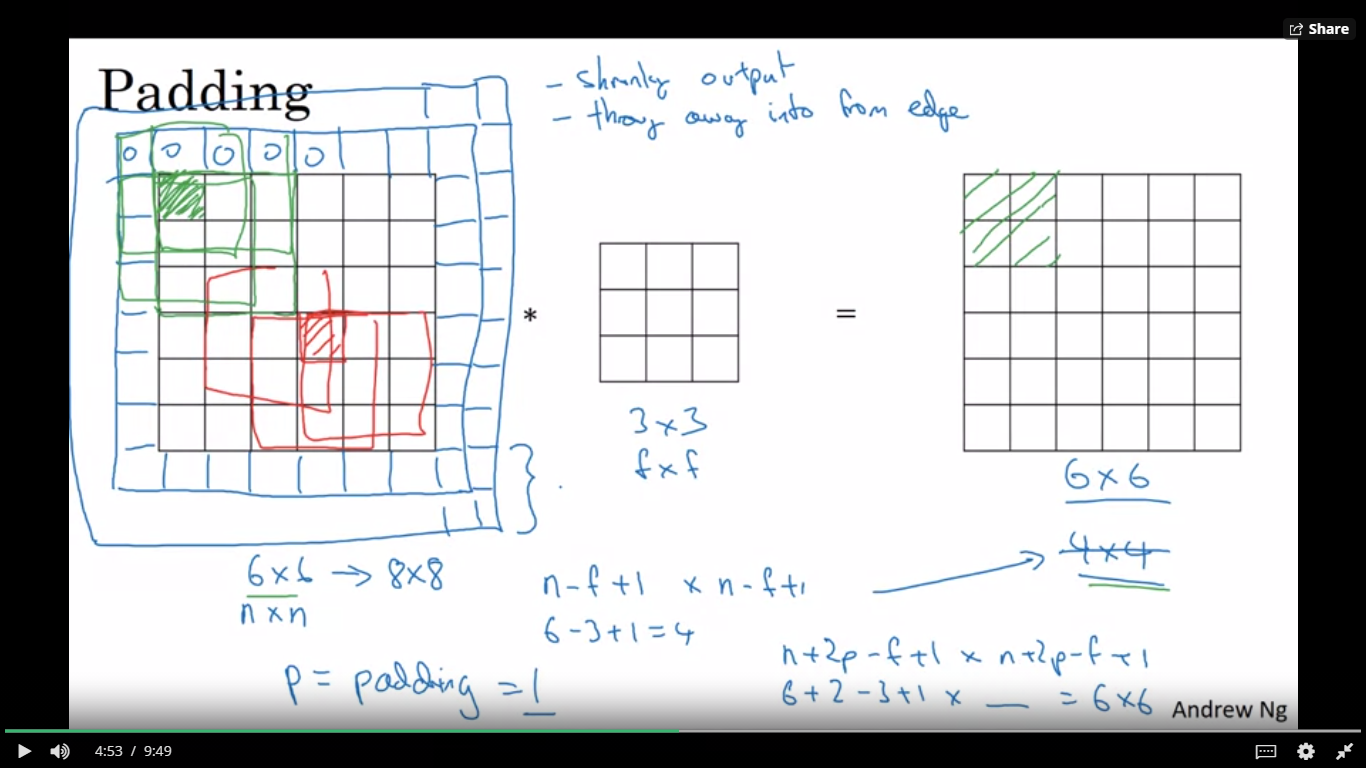 Share
Padding
- shrinky output
- throw away info from edge
0 0 0 0 0
*
=
3 × 3
f × f
6 × 6
4 × 4
6 × 6 → 8 × 8
n × n
n - f + 1 × n - f + 1
6 - 3 + 1 = 4
n + 2p - f + 1 × n + 2p - f + 1
6 + 2 - 3 + 1 × __ = 6 × 6
p = padding = 1
Andrew Ng
4:53 / 9:49